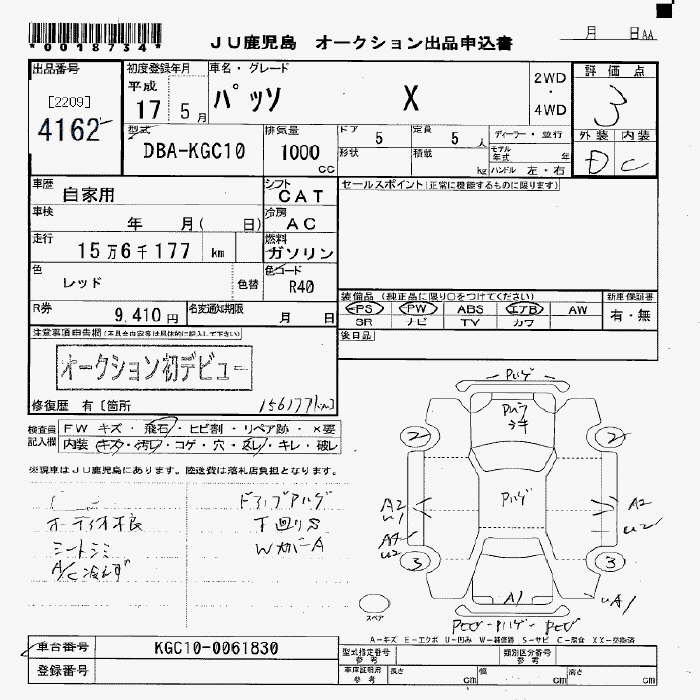 *0018734*
JU鹿児島 オークション出品申込書
月 日AA
出品番号
[2209]
4162
初度登録年月
平成
17 5月
車名・グレード
パッソ X
2WD
・
4WD
評価点
3
外装 内装
D C
型式
DBA-KGC10
排気量
1000
cc
ドア 5
定員 5人
ディーラー・並行
形状
積載 kg
モデル年式 年
ハンドル 左・右
車歴
自家用
シフト
CAT
セールスポイント(正常に機能するものに限ります)
車検
年 月( 日)
冷房
AC
走行
15万6千177 km
燃料
ガソリン
色
レッド
色替
色コード
R40
装備品(純正品に限り○をつけてください)
新車保証書
PS PW ABS エアB AW
有・無
SR ナビ TV カワ
R券
9,410円
名変通知期限
月 日
後日品
注意事項申告欄(不具合内容等は具体的に記入して下さい)
オークション初デビュー
修復歴 有〔箇所
156177km〕
検査員記入欄
FW キズ・飛石・ヒビ割・リペア跡・×要
内装 キズ・汚レ・コゲ・穴・スレ・キレ・破レ
※現車はJU鹿児島にあります。陸送費は落札店負担となります。
オーディオ不良
シートシミ
A/C冷えず
下回りS
WカバーA
2 2
A2
U1
A2
U2
A4
U2
3 3
A1
UA1
スペア
A-キズ E-エクボ U-凹み W-補修跡 S-サビ C-腐食 XX-交換済
車台番号
KGC10-0061830
登録番号
型式指定番号
参考
類別区分番号
参考
車庫証明用
参考
長さ cm
幅 cm
高さ cm